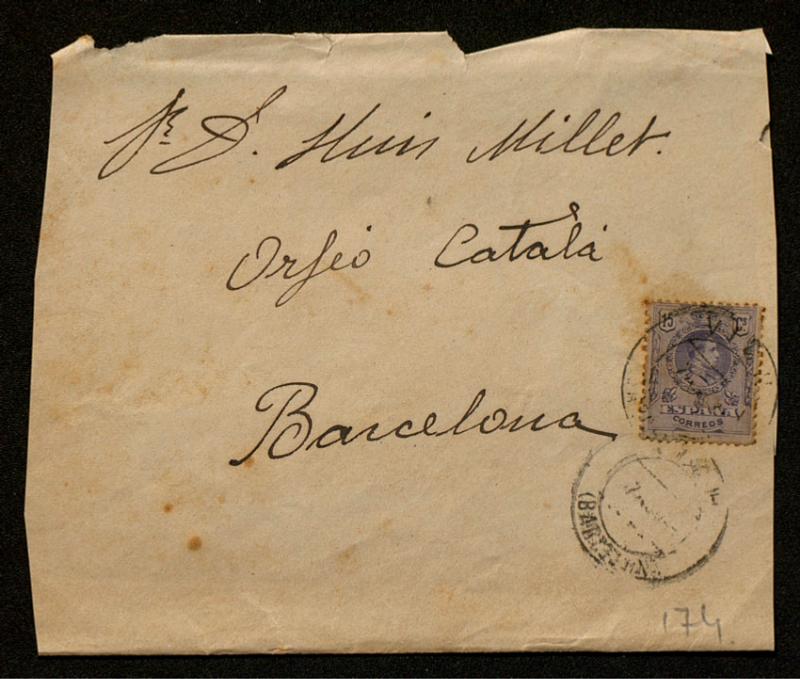 Sr. D. Lluis Millet.
Orfeó Català
Barcelona
15 Cs
ESPAÑA
CORREOS
174.